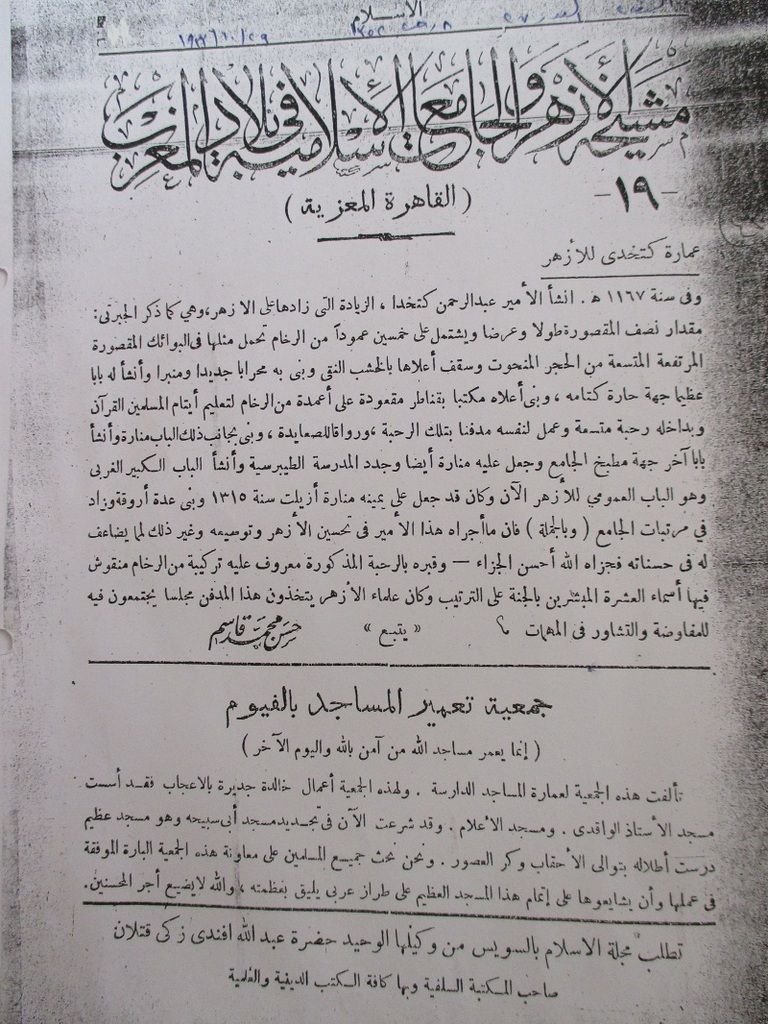 الاسلام
مشيخة الأزهر والجامعات الاسلامية في بلاد المغرب
-١٩-
( القاهرة المعزية )
عمارة كتخدى للأزهر
وفى سنة ١١٦٧ هـ . انشأ الأمير عبدالرحمن كتخدا ، الزيادة التى زادها على الازهر، وهى كما ذكر الجبرتى :
مقدار نصف المقصورة طولا وعرضا ويشتمل على خمسين عموداً من الرخام تحمل مثلها فى البوائك المقصورة
المرتفعة المتسعة من الحجر المنحوت وسقف أعلاها بالخشب النقى وبنى به محرابا جديدا ومنبرا وأنشأ له بابا
عظيما جهة حارة كتامه ، وبنى أعلاه مكتبا بقناطر مقعودة على أعمدة من الرخام لتعليم أيتام المسلمين القرآن
وبداخله رحبة متسعة وعمل لنفسه مدفنا بتلك الرحبة ، ورواقا للصعايدة ، وبنى بجانب ذلك الباب منارة وأنشأ
بابا آخر جهة مطبخ الجامع وجعل عليه منارة أيضا وجدد المدرسة الطيبرسية وأنشأ الباب الكبير الغربى
وهو الباب العمومي للأزهر الآن وكان قد جعل على يمينه منارة أزيلت سنة ١٣١٥ وبنى عدة أروقة وزاد
في مرتبات الجامع ( وبالجملة ) فان ماأجراه هذا الأمير فى تحسين الأزهر وتوسيعه وغير ذلك لما يضاعف
له فى حسناته فجزاه الله أحسن الجزاء — وقبره بالرحبة المذكورة معروف عليه تركيبة من الرخام منقوش
فيها أسماء العشرة المبشرين بالجنة على الترتيب وكان علماء الأزهر يتخذون هذا المدفن مجلسا يجتمعون فيه
للمفاوضة والتشاور فى المهمات « يتبع » حسن محمد قاسم
جمعية تعمير المساجد بالفيوم
( إنما يعمر مساجد الله من آمن بالله واليوم الآخر )
تألفت هذه الجمعية لعمارة المساجد الدارسة . ولهذه الجمعية أعمال خالدة جديرة بالاعجاب فقد أسست
مسجد الأستاذ الواقدى . ومسجد الأعلام . وقد شرعت الآن فى تجديد مسجد أبى سبيحه وهو مسجد عظيم
درست أطلاله بتوالى الأحقاب وكر العصور . ونحن نحث جميع المسلمين على معاونة هذه الجمعية البارة الموفقة
فى عملها وأن يشايعوها على إتمام هذا المسجد العظيم على طراز عربى يليق بعظمته ، والله لايضيع أجر المحسنين .
تطلب مجلة الاسلام بالسويس من وكيلها الوحيد حضرة عبد الله افندى زكى قتلان
صاحب المكتبة السلفية وبها كافة الكتب الدينية والعلمية